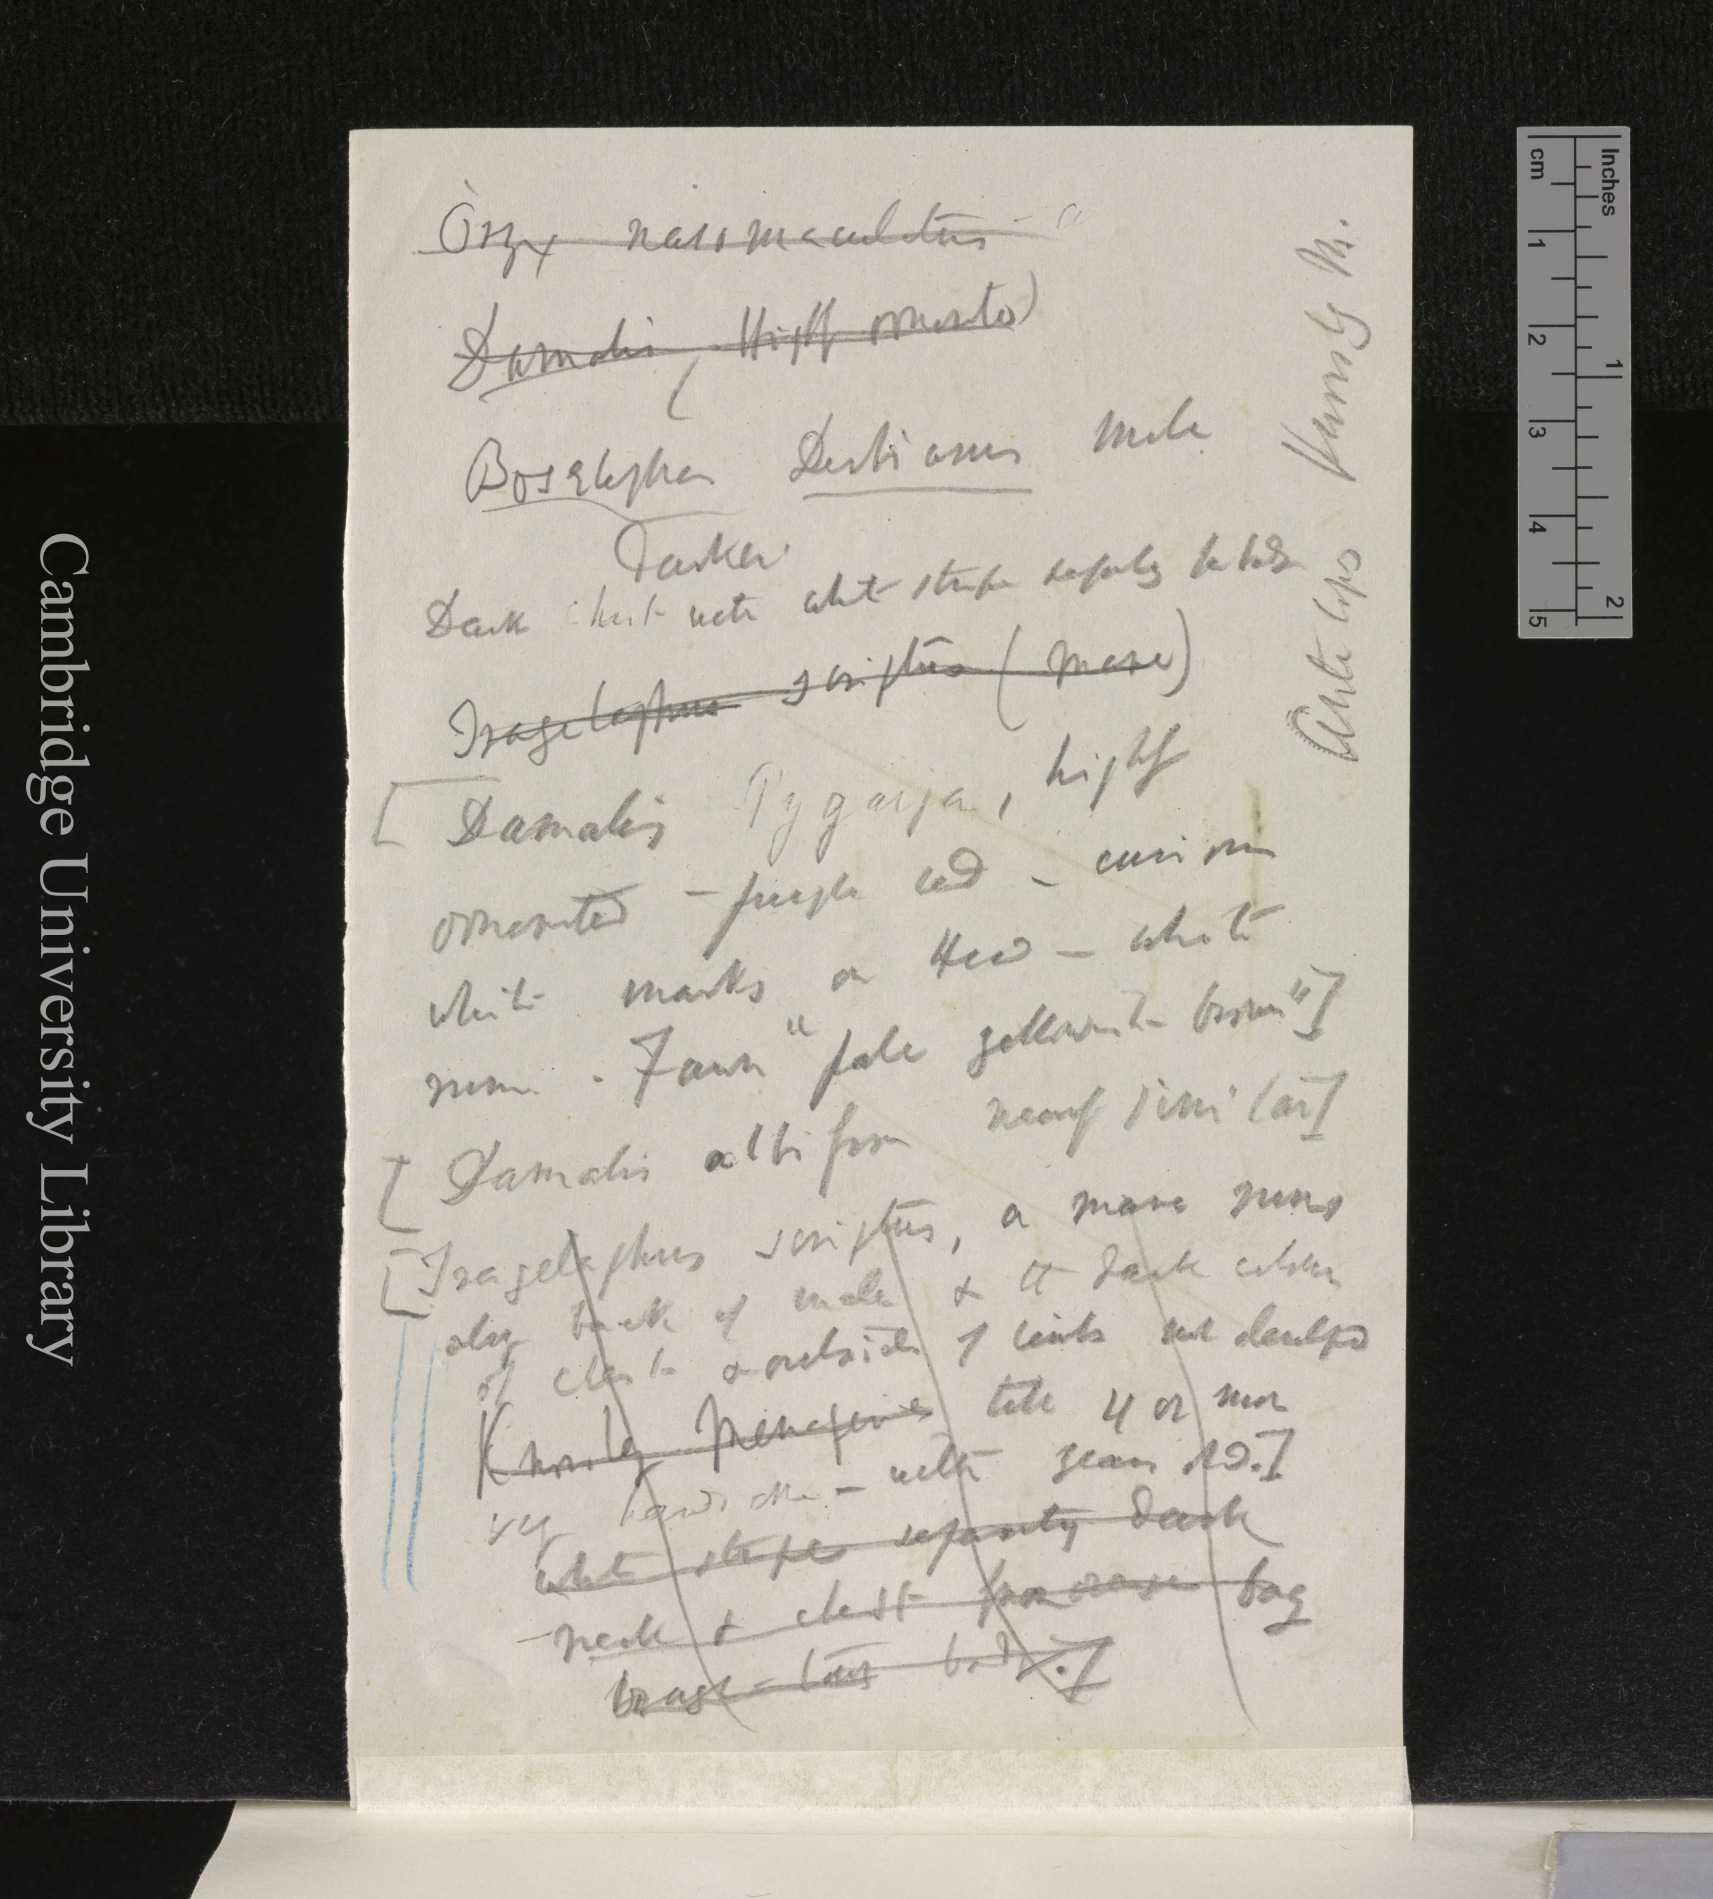 Oryx nasomaculatus
Damalis (Highly ornamented)
Boselaphus Derbianus male
Darker
Dark chest with white stripe separating
Tragelaphus scriptus (Mane)
[Damalis Pygarga, highly
ornamented – purple red – curious
white marks on Head – white
rum. Fawn "pale yellowish brown"]
[Damalis albifrons nearly similar]
[Tragelaphus scriptus, a mane runs
along back of male & the dark colour
of chest & outside of limbs not developed
Knowsley Menagerie till 4 or more
very handsome – with years old.]
white stripe separating dark
neck & chest from orange bay
body.]
Antelopes Knowsly M.
Cambridge University Library
Inches
1
2
cm
1
2
3
4
5